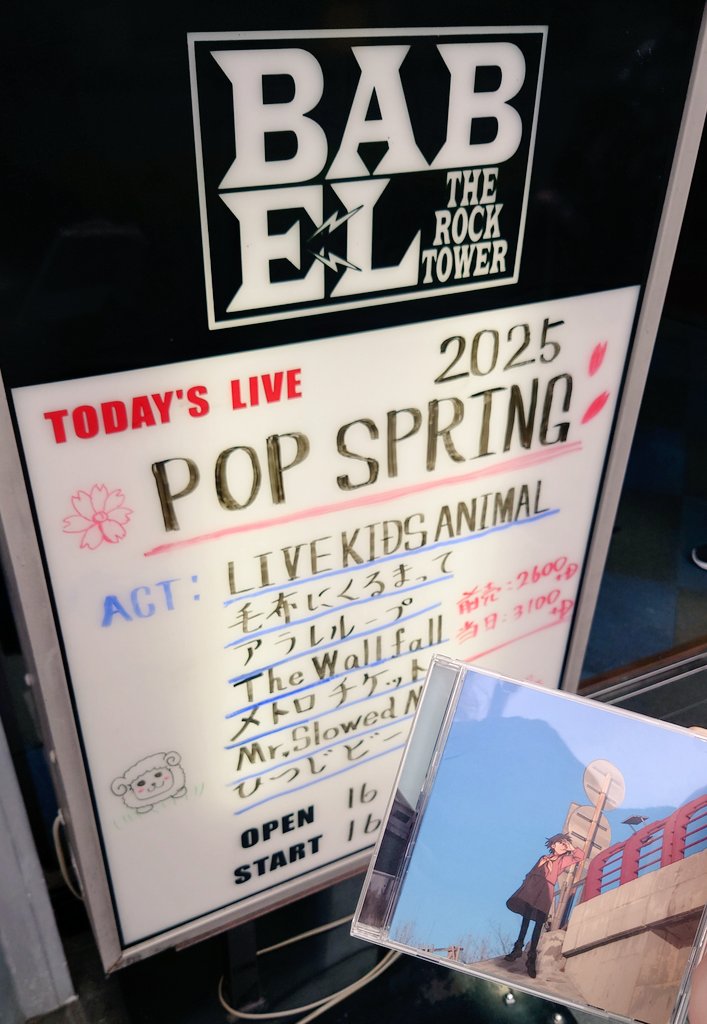 BAB
EL THE
ROCK
TOWER
TODAY'S LIVE
2025
POP SPRING
ACT: LIVE KIDS ANIMAL
毛布にくるまって
アラレループ
The Wallfall
メトロチケット
Mr.Slowed
ひつじビー
前売:2600+D
当日:3100+D
OPEN 16
START 16